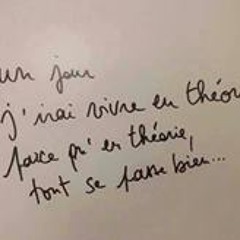 un jour
j'irai vivre en théor
parce qu'en théorie,
tout se passe bien...